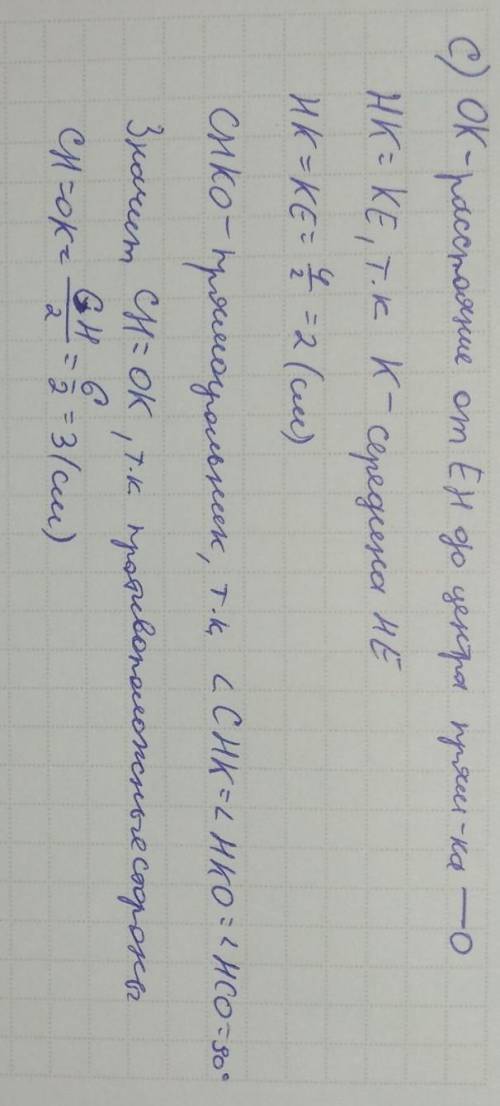 С) OK-расстояние от EH до центра прям-ка — O
HK = KE, т.к K - середина HE
HK = KE = 4/2 = 2 (см)
CHKO - прямоугольник, т.к, ∠CHK = ∠HKO = ∠HCO = 90°
Значит CH = OK, т.к. противоположные стороны
CH = OK = GH/2 = 6/2 = 3 (см)